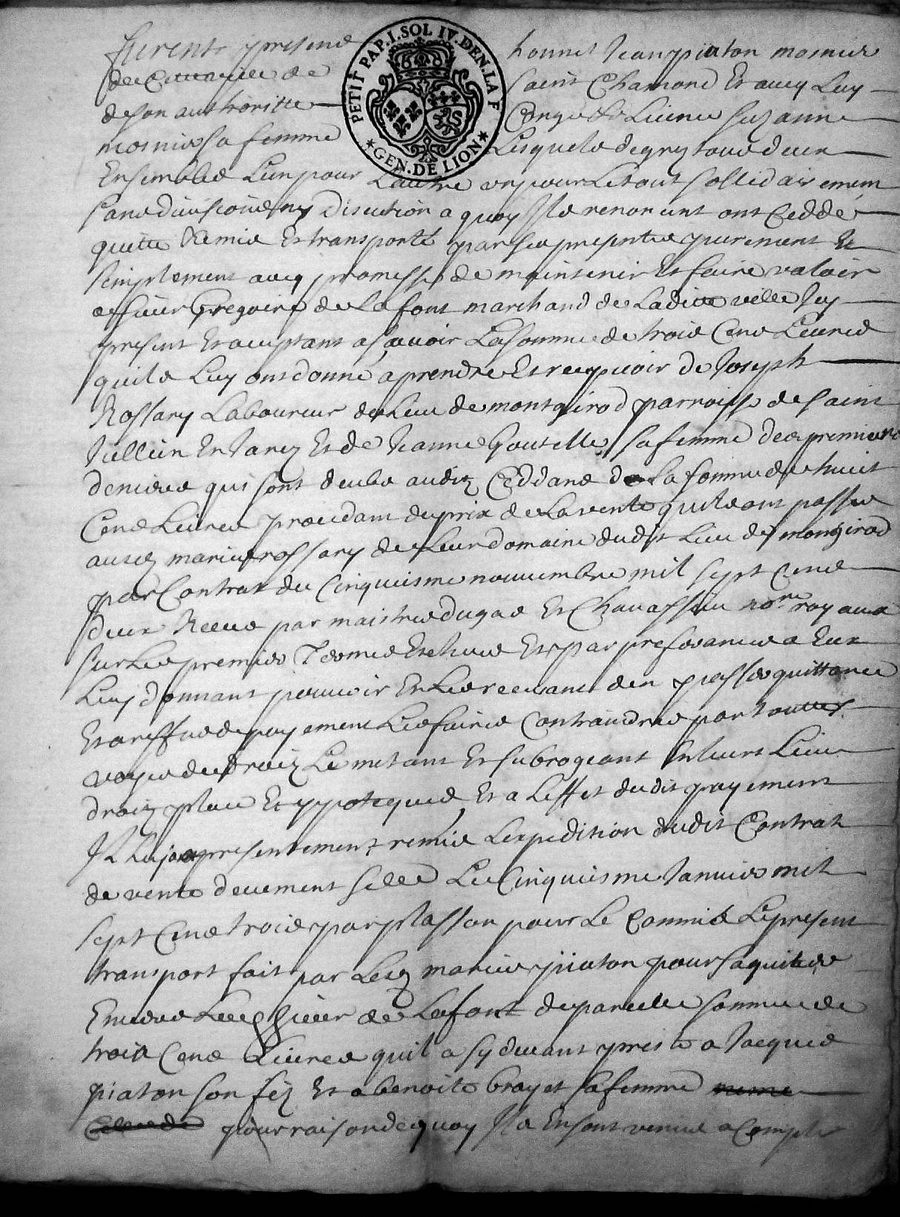 PETIT PAP. I. SOL IV. DEN. LA F
GEN. DE LION
furent present honnet Jean piaton mosnier
de Saint Chamond Et avecq Luy
de son authoritte Congé & Licence Suzanne
mosnier sa femme Lesquels de gre tous deux
Ensemble L'un pour L'autre un seul pour Le tout sollidairement
sans division ny discution a quoy Ils renoncent ont Ceddé
quitte Remis Et transporté par ses presentes purement Et
simplement avecq promesse de maintenir Et faire valoir
a sieur Gregoire de Lafont marchand de Ladite ville Icy
present Et aceptant a scavoir La somme de trois Cens Livres
quils Luy ont donné a prendre Et recepvoir de Joseph
Rossary Laboureur du Lieu de montgirod parroisse de Saint
Jullien En Jarez Et de Jeanne Goutelle sa femme des premiers
deniers qui sont deubs audit Ceddans de La somme de huict
Cens Livres procedam du prix de La vente quils ont passée
ausd maries Rossary de Leur domaine dudit Lieu de montgirod
par Contrat du Cinquiesme nouvembre mil sept Cens
deux Receu par maistres dugas Et Chavassieu nores royaux
sur Les premiers Termes Escheus Et par preferance a Eux
Luy donnant pouvoir En Les recevant d'en passer quittance
Et a reffus de payement Les faire Contraindre par touttes
voyes de droit Le metant Et subrogeant En leurs Lieu
droit place Et ypoteque Et a L'effet dudit payement
Ils Luy ont presentement remis L'expedition dudit Contrat
de vente deuement sellé Le Cinquiesme Janvier mil
sept Cens trois par plasson pour Le Commis Le present
transport fait par Lesd maries piaton pour s'aquiter
Envers Led sieur de Lafont de pareille somme de
trois Cens Livres quil a sy devant preste a Jacques
piaton son fils Et a benoite brayet sa femme
pour raison de quoy Ils En sont venus a Compte